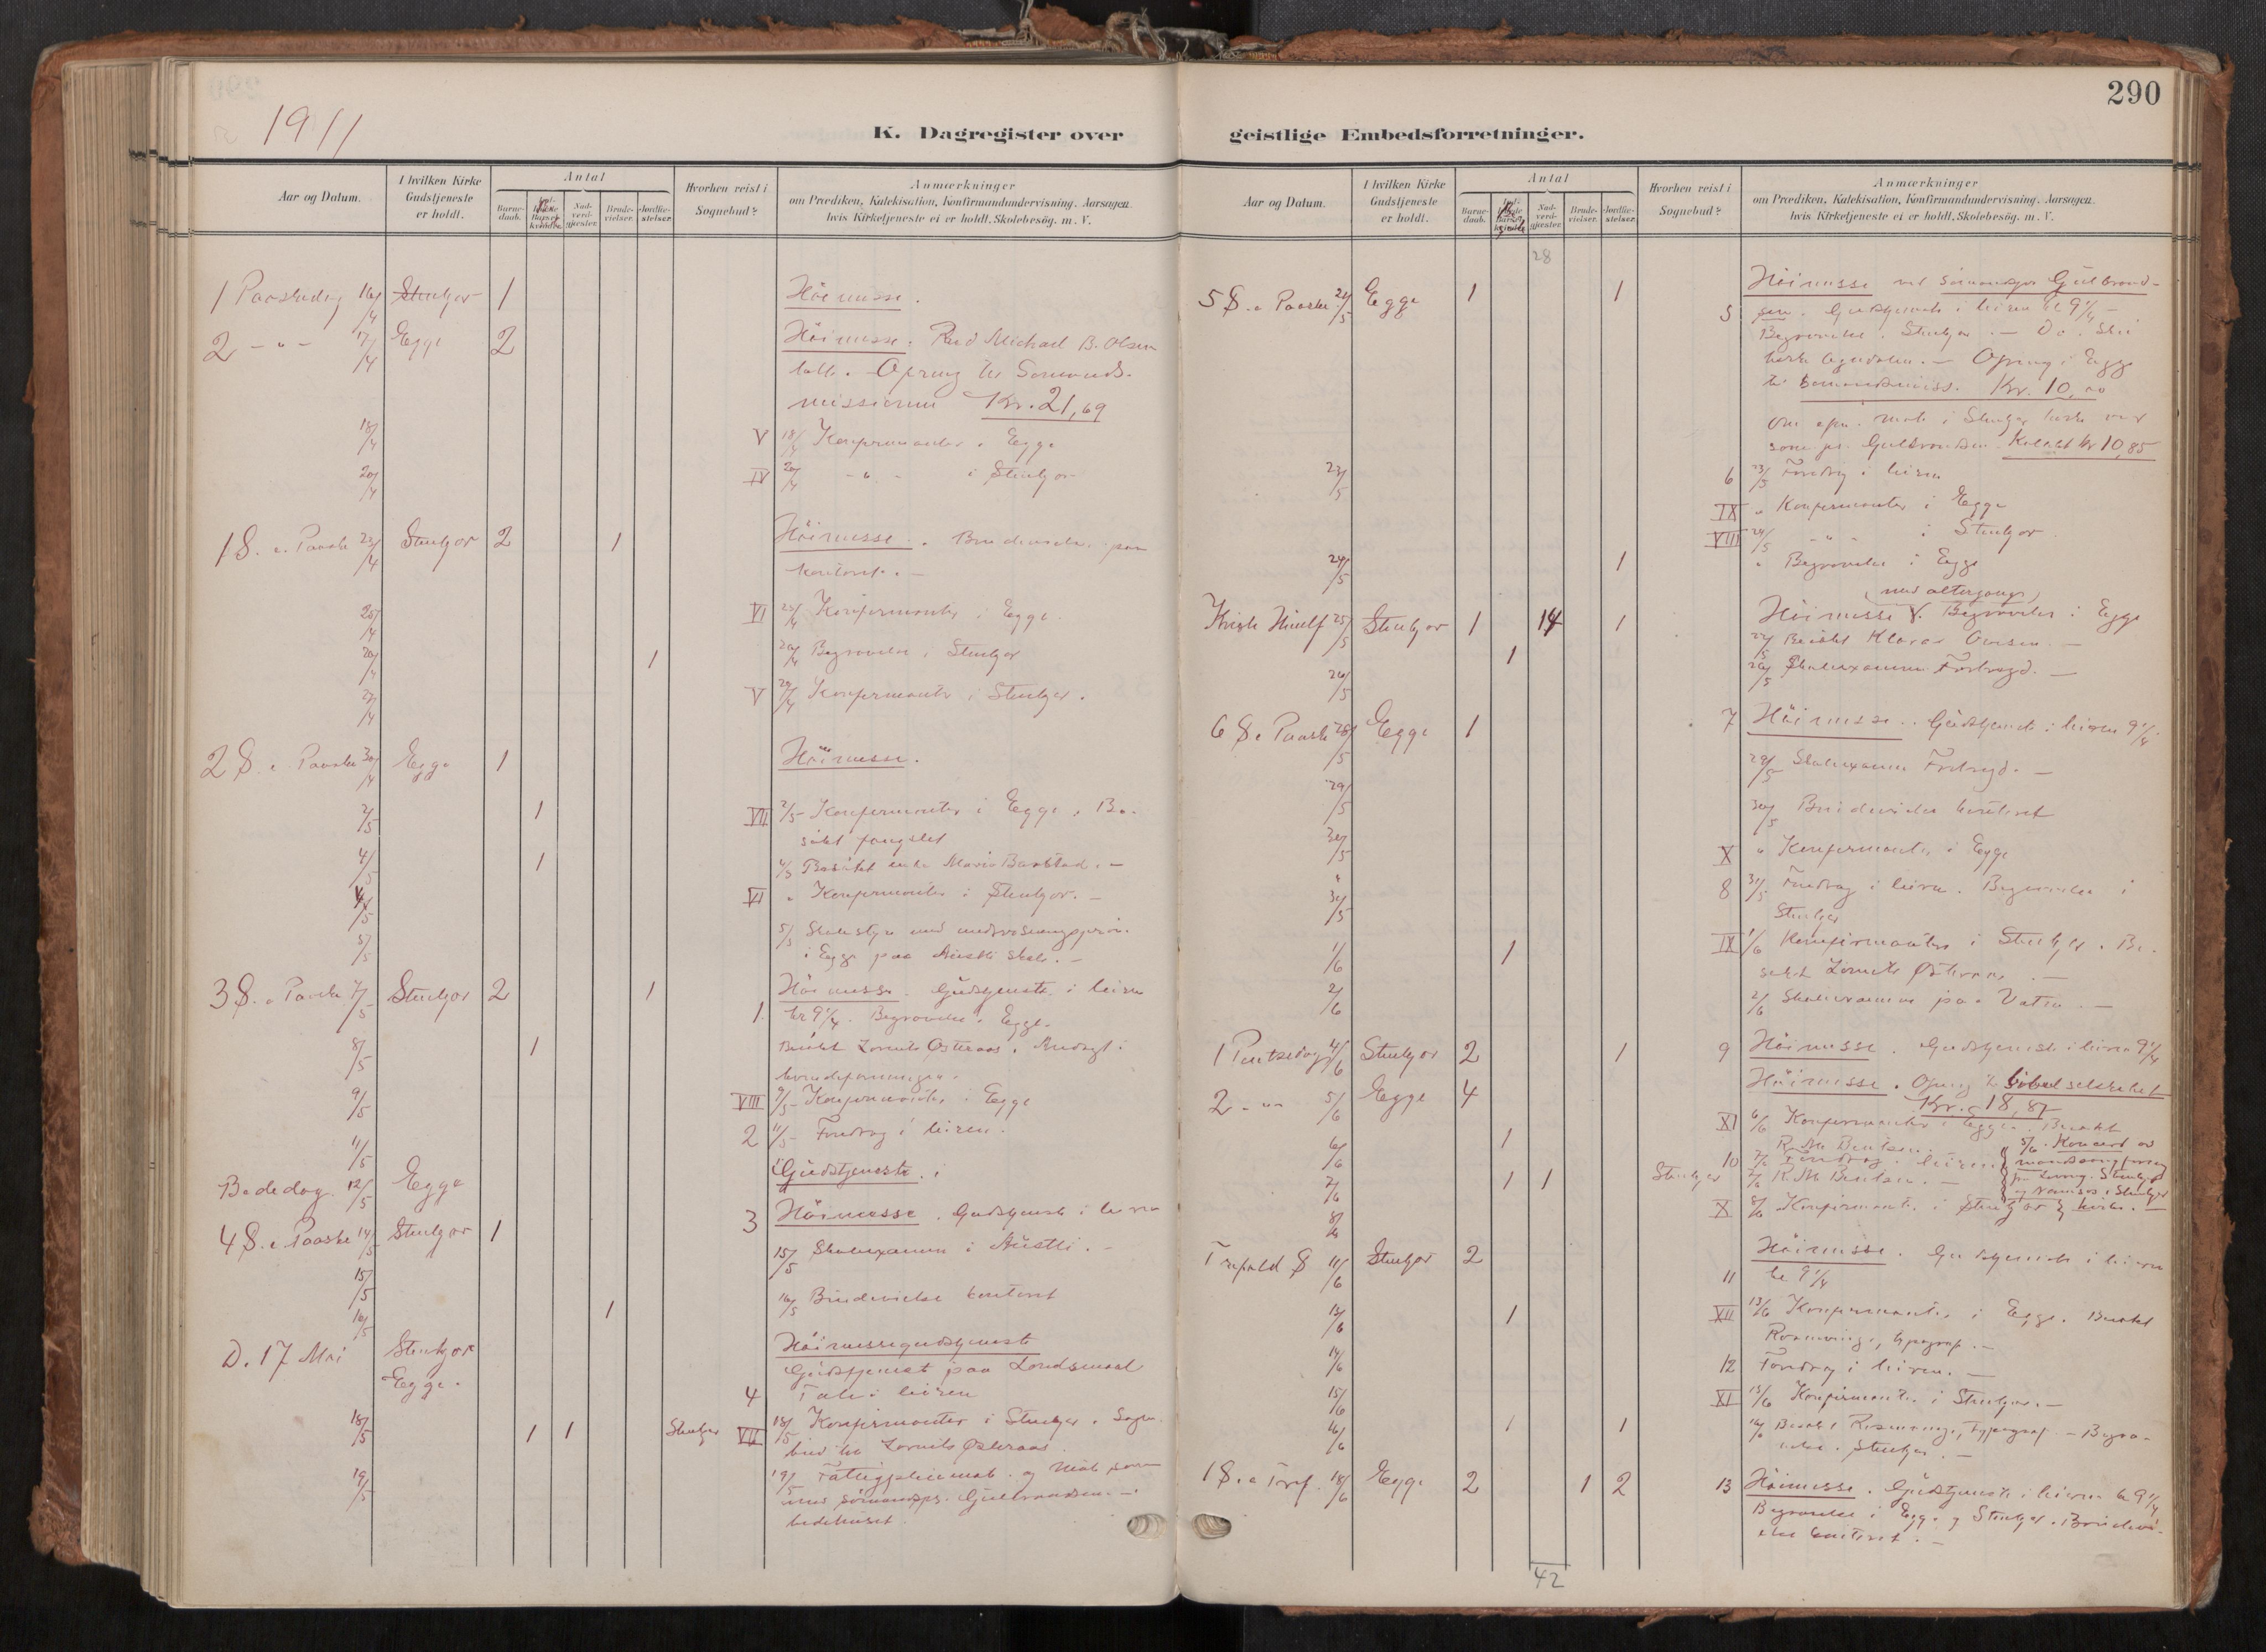 1911
K. Dagregister over
Aar og Datum.
I hvilken Kirke Gudstjeneste er holdt.
Antal
Barne-daab.
Nad-verd-gjæster.
Brude-vielser.
Jordfæ-stelser.
Hvorhen reist i Sognebud?
Anmærkninger
om Prædiken, Katekisation, Konfirmandundervisning. Aarsagen,
hvis Kirketjeneste ei er holdt. Skolebesøg. m. V.
1 Paaskedag 16/4 Stenkjær 1 Höimesse.
2 - " - 17/4 Egge 2 Höimesse. Michael B. Olsen
talte. Opring til Sømands-
missionen Kr. 21,69
18/4 V 18/4 Konfirmanter i Egge
20/4 IV 20/4 - " - i Stenkjær
1 S. e. Paaske 23/4 Stenkjær 2 1 Höimesse. Brudevielse paa
kontoret. -
25/4 VI 25/4 Konfirmanter i Egge.
26/4 1 26/4 Begravelse i Stenkjær
27/4 V 27/4 Konfirmanter i Stenkjær.
2 S. e. Paaske 30/4 Egge 1 Höimesse.
2/5 1 VII 2/5 Konfirmanter i Egge. Be-
søkt fængslet
4/5 1 4/5 Besøkt enke Marie Barstad. -
4/5 VI " Konfirmanter i Stenkjær. -
5/5 5/5 Skolestyre
i Egge paa Austli skole. -
3 S. e. Paaske 7/5 Stenkjær 2 1 Höimesse. Gudstjeneste i leiren
1. kl 9 1/4. Begravelse i Egge.
8/5 1 Besøkt Lornits Østeraas. Andagt i
kvindeforeningen.
9/5 VIII 9/5 Konfirmanter i Egge
11/5 2 11/5 Foredrag i leiren.
Bededag 12/5 Egge Gudstjeneste.
4 S. e. Paaske 14/5 Stenkjær 1 3 Höimesse. Gudstjeneste i leiren
15/5 15/5 Skoleexamen i Austli. -
16/5 1 16/5 Brudevielse kontoret
D. 17 Mai Stenkjær Höimessegudstjeneste
Egge. Gudstjeneste paa
4 Tale i leiren
18/5 1 1 Stenkjær VII 18/5 Konfirmanter i Stenkjær. Sogne-
bud til Lornits Østeraas.
19/5 19/5 Fattigpleiemøte og møte
med sömandspr. Gulbrandsen. -
bedehuset.
290
geistlige Embedsforretninger.
Aar og Datum.
I hvilken Kirke Gudstjeneste er holdt.
Antal
Barne-daab.
Nad-verd-gjæster.
Brude-vielser.
Jordfæ-stelser.
Hvorhen reist i Sognebud?
Anmærkninger
om Prædiken, Katekisation, Konfirmandundervisning. Aarsagen,
hvis Kirketjeneste ei er holdt. Skolebesøg. m. V.
28
5 S. e. Paaske 21/5 Egge 1 1 Höimesse ved Sömandspr Gulbrand-
5 sen. Gudstjeneste i leiren kl 9 1/4 -
Begravelse. Stenkjær. - Do.
Opring i Egge
til Sömandsmiss. Kr. 10,00
Om efm. møte i Stenkjær kirke ved
sømpr. Gulbrandsen. Kollekt kr 10,85
23/5 6 23/5 Foredrag i leiren
IX " Konfirmanter i Egge
VIII 24/5 - " - i Stenkjær.
24/5 1 " Begravelse i Egge
Kristi Himlf 25/5 Stenkjær 1 14 1 Höimesse (med altergang). Begravelse i Egge
1 Besøkt Klara
26/5 26/5 Skoleexamen -
6 S. e. Paaske 28/5 Egge 1 7 Höimesse. Gudstjeneste i leiren 9 1/4.
29/5 29/5 Skoleexamen -
30/5 30/5 Brudevielse kontoret
" X " Konfirmanter i Egge
31/5 8 31/5 Foredrag i leiren. Begravelse i
Stenkjær
1/6 1 IX 1/6 Konfirmanter i Stenkjær. Be-
søkt Lornits Østeraas. -
2/6 2/6 Skoleexamen paa -
1 Pintsedag 4/6 Stenkjær 2 1 9 Höimesse. Gudstjeneste i leiren 9 1/4
2 - " - 5/6 Egge 4 Höimesse. Opring til bibelselskabet
Kr. 18,87
6/6 1 XI 6/6 Konfirmanter i Egge. Besøkt
R. M. Bentsen. 5/6. Koncert av
10 7/6 Foredrag i leiren
7/6 1 1 Stenkjær 7/6 R. M. Bentsen. - Stenkjær
og Namsos i Stenkjær
8/6 X 8/6 Konfirmanter i Stenkjær kirke. -
Trefold S 11/6 Stenkjær 2 Höimesse. Gudstjeneste i leiren
11 kl 9 1/4
13/6 1 XII 13/6 Konfirmanter i Egge. Besøkt
typograf. -
14/6 12 Foredrag i leiren. -
15/6 XI 15/6 Konfirmanter i Stenkjær. -
16/6 1 1 16/6 Besøkt Typograf. - Begra-
velse. Stenkjær. -
1 S. e Tref. 18/6 Egge 2 1 2 13 Höimesse. Gudstjeneste i leiren kl 9 1/4
Begravelse i Egge og Stenkjær. Brudevi-
else kontoret. -
42